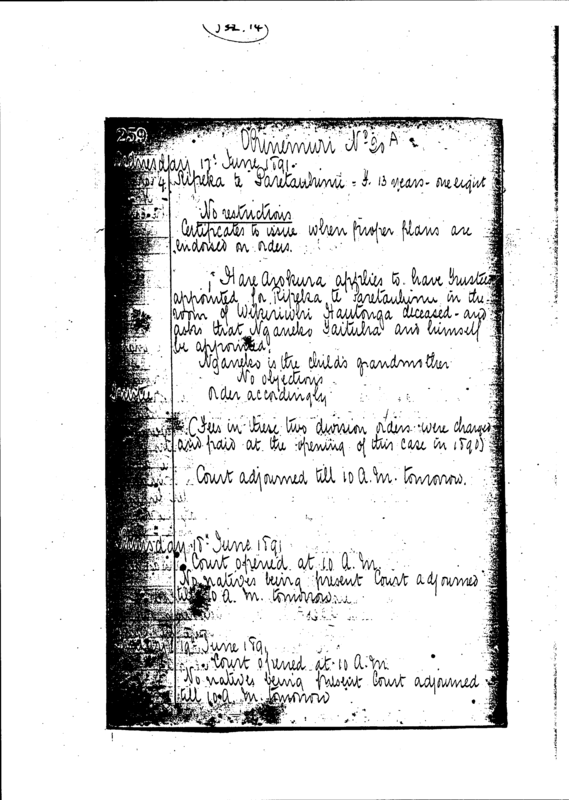 J 32. 14
259
Ohinemuri No 20 A 2
Wednesday 17th June 1891.
Ripeka te Paretauhinu = F. 13 years - one eight
No restrictions
Certificates to issue when proper plans are
endorsed on orders.
Hare Arokura applies to have Trustees
appointed for Ripeka te Paretauhinu in the
room of Wikiriwhi Hautonga deceased - and
asks that Nganeko and himself
be appointed.
Nganeko is the child's grandmother
No objections
Order accordingly
Trustee
(Fees in these two division orders were charged
and paid at the opening of this case in 1890)
Court adjourned till 10 A.M. tomorrow.
Thursday 18th June 1891
Court opened at 10 A.M.
No natives being present Court adjourned
till 10 A.M. tomorrow
19th June 1891
Court opened at 10 A.M.
No natives being present Court adjourned
till 10 A.M. tomorrow